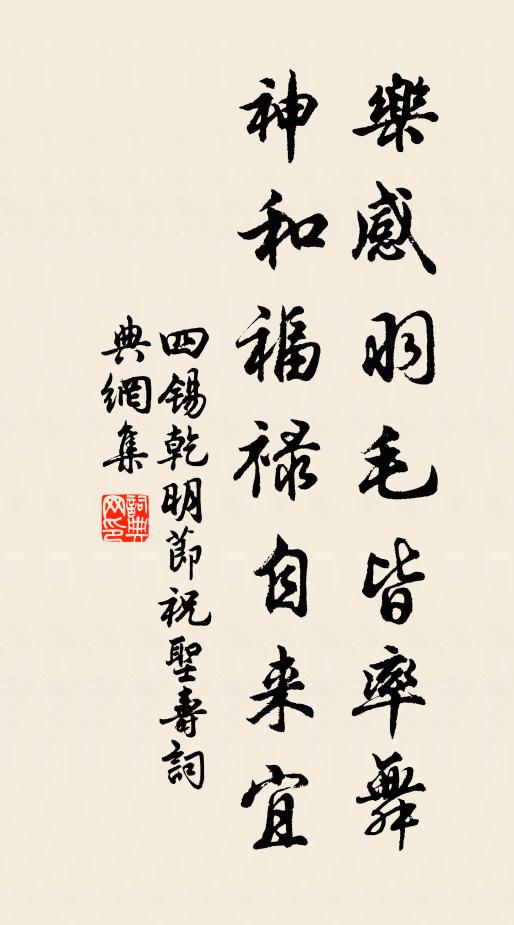 樂感羽毛皆率舞
神和福禄自来宜
四锡乾明節祝聖壽詞
典網集
詞典網印